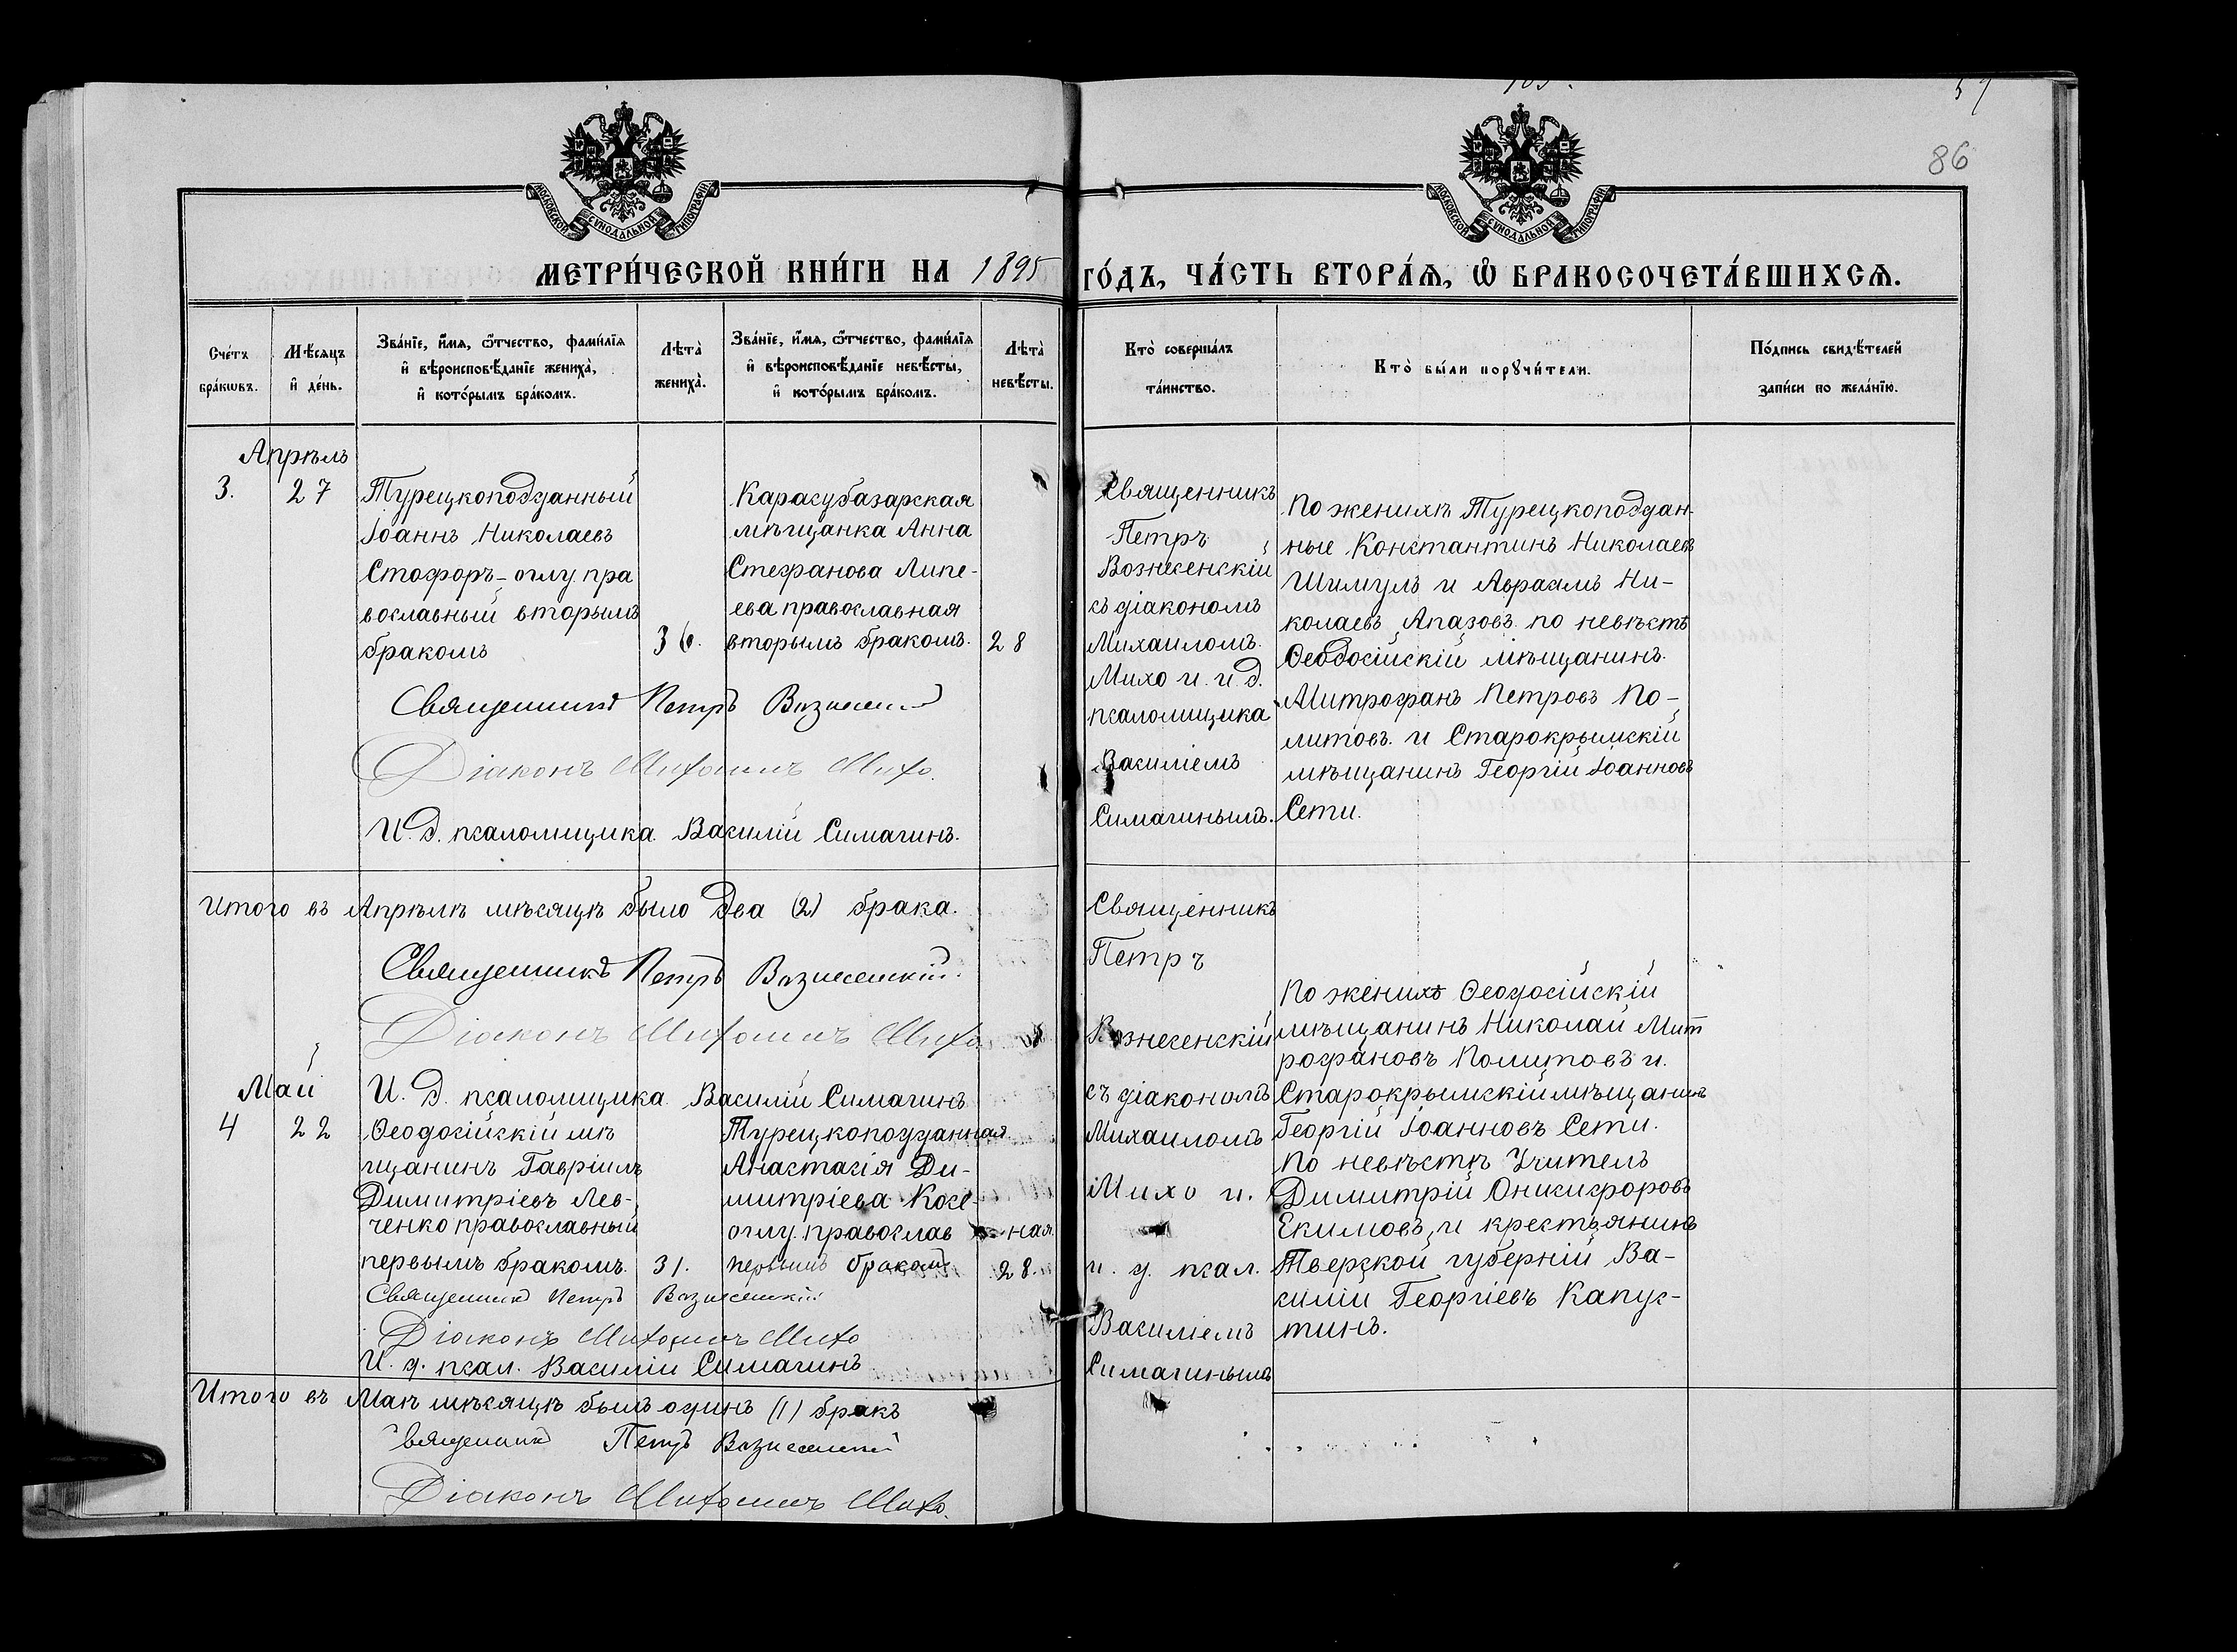 59
86
МОСКОВСКОЙ СѴНОДАЛЬНОЙ ТИПОГРАФІИ
МОСКОВСКОЙ СѴНОДАЛЬНОЙ ТИПОГРАФІИ
МЕТРИ́ЧЕСКОЙ КНИ́ГИ НА 1895 ГО́ДЪ, ЧА́СТЬ ВТОРА́Ѧ, Ѡ҆ БРАКОСОЧЕТА́ВШИХСѦ.
Сче́тъ
бра́кѡвъ.
Мѣ́сѧцъ
и҆ де́нь.
Зва́нїе, и҆́мѧ, ѻ҆́тчество, фами́лїѧ
и҆ вѣроисповѣ́данїе жениха̀,
и҆ кото́рымъ бра́комъ.
Лѣта̀
жениха̀.
Зва́нїе, и҆́мѧ, ѻ҆́тчество, фами́лїѧ
и҆ вѣроисповѣ́данїе невѣ́сты,
и҆ кото́рымъ бра́комъ.
Лѣта̀
невѣ́сты.
Кто̀ соверша́лъ
та́инство.
Кто̀ бы́ли порꙋчи́тели.
По́дпись свидѣ́телей
запи́си по жела́нїю.
Апрѣль
3.
27
Турецкоподданный
Іоаннъ Николаевъ
Стофоръ-оглу пра
вославный вторымъ
бракомъ
36.
Карасубазарская
мѣщанка Анна
Стефанова Липе-
ева православная
вторымъ бракомъ.
28
Священникъ
Петръ
Вознесенскій
съ діакономъ
Михаиломъ
Михо и. и. д.
псаломщика
Василіемъ
Симагинымъ.
По женихѣ Турецкоподдан-
ные Константинъ Николаевъ
Шимулъ и Авраамъ Ни-
колаевъ Апазовъ по невѣстѣ
Ѳеодосійскій мѣщанинъ
Митрофанъ Петровъ По-
литовъ и Старокрымскій
мѣщанинъ Георгій Іоанновъ
Сети.
Священникъ Петръ Вознесенскій
Діаконъ Михаилъ Михо.
И. д. псаломщика Василій Симагинъ.
Итого въ Апрѣлѣ мѣсяцѣ было два (2) брака.
Священникъ Петръ Вознесенскій.
Діаконъ Михаилъ Михо
И. д. псаломщика Василій Симагинъ
Май
4
22
Ѳеодосійскій мѣ
щанинъ Гавріилъ
Димитріевъ Лев-
ченко православный
первымъ бракомъ.
31.
Турецкоподданная
Анастасія Ди-
митріева Косе-
оглу православ ная
первымъ бракомъ
28.
Священникъ
Петръ
Вознесенскій
съ діакономъ
Михаиломъ
Михо и.
и. д. псал.
Василіемъ
Симагинымъ
По женихѣ Ѳеодосійскій
мѣщанинъ Николай Мит
рофановъ Политовъ и
Старокрымскій мѣщанинъ
Георгій Іоанновъ Сети.
По невѣстѣ Учитель
Димитрій Оникифоровъ
Екимовъ, и крестьянинъ
Тверской губерніи Ва-
силій Георгіевъ Капус-
тинъ.
Священникъ Петръ Вознесенскій
Діаконъ Михаилъ Михо
И. д. псал. Василій Симагинъ
Итого въ Маѣ мѣсяцѣ былъ одинъ (1) бракъ
Священникъ Петръ Вознесенскій
Діаконъ Михаилъ Михо.